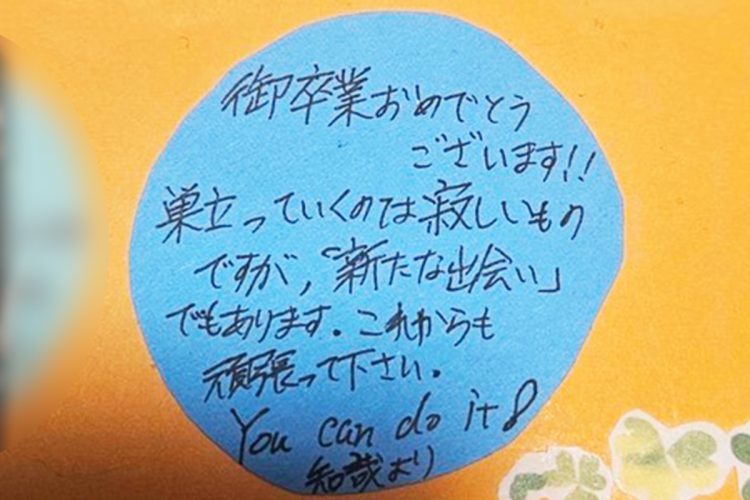 御卒業おめでとう
ございます!!
巣立っていくのは寂しいもの
ですが,「新たな出会い」
でもあります.これからも
頑張って下さい.
You can do it!
知哉より